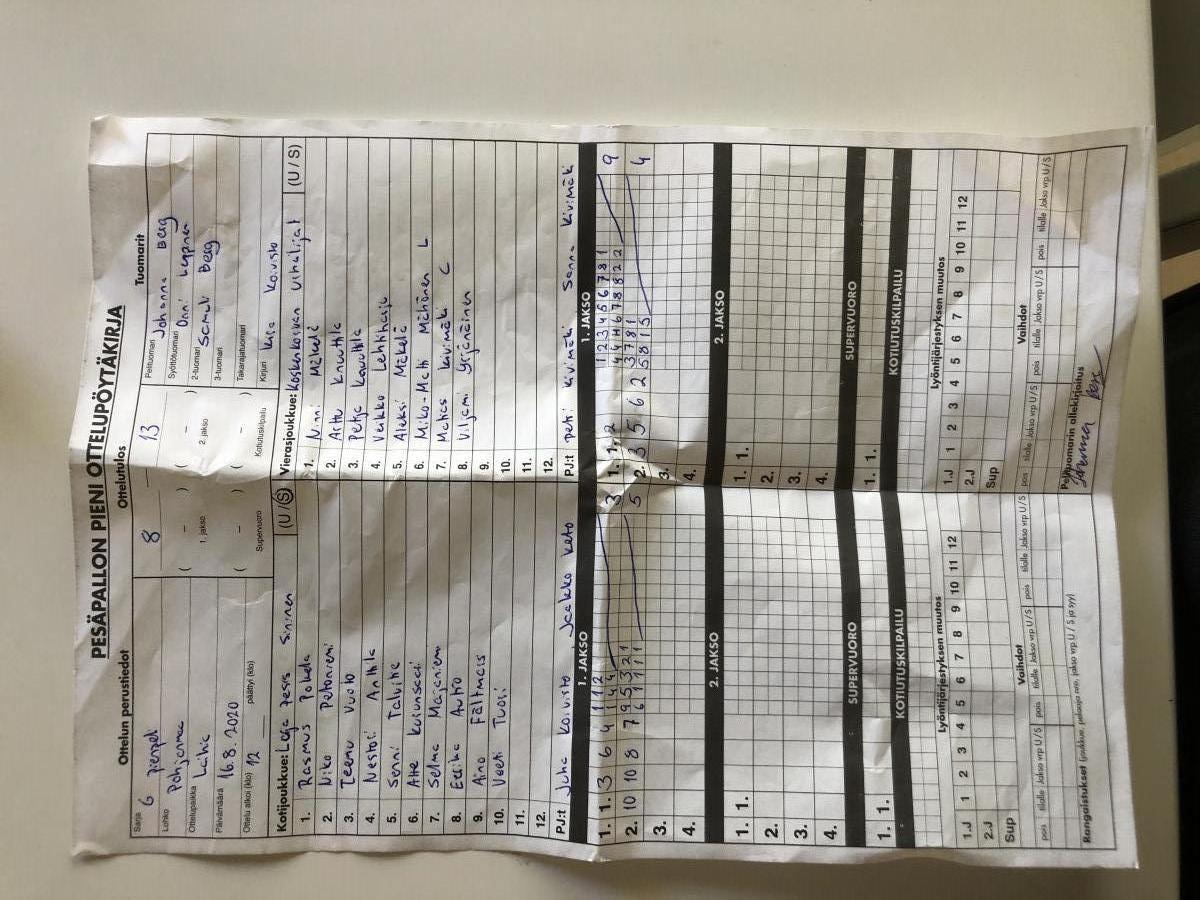 PESÄPALLON PIENI OTTELUPÖYTÄKIRJA
Ottelun perustiedot
Sarja G Pienpeli
Lohko Pohjanmaa
Ottelupaikka Laihia
Päivämäärä 16.8.2020
Ottelu alkoi (klo) 12 päättyi (klo)
Ottelutulos
8 13
( – ) ( – )
1. jakso 2. jakso
( – ) ( – )
Supervuoro Kotiutuskilpailu
Tuomarit
Pelituomari Johanna Berg
Syöttötuomari Onni Leppinen
2-tuomari Samuli Berg
3-tuomari
Takarajatuomari
Kirjuri Koivisto
Kotijoukkue: Pesis Sininen (U/S)
1. Rasmus Pokela
2. Niko Petoniemi
3. Teemu Vuoto
4. Anttila
5. Senni
6. Atte
7. Selma Majaniemi
8. Eerika Autio
9. Aino Fältmars
10. Veeti Tuosi
11.
12.
PJ:t Juha Koivisto Jaakko Keto
Vierasjoukkue: Koskenkorvan Urheilijat (U/S)
1. Ninni Mäkelä
2. Arttu Knuuttila
3. Petja
4. Veikko Lehtiharju
5. Aleksi Mäkelä
6. Miko-Matti Mähönen L
7. Matias Kivimäki C
8. Viljami Yrjänäinen
9.
10.
11.
12.
PJ:t Petri Kivimäki Sanna Kivimäki
1. JAKSO
1. 1. 3 6 4 1 1 1 2 3
2. 10 10 8 7 9 5 3 2 1 5
3.
4.
2. JAKSO
1. 1.
2.
3.
4.
SUPERVUORO
1. 1.
KOTIUTUSKILPAILU
1. JAKSO
1. 1. 2 1 2 3 4 5 6 7 8 1 9
2. 3 5 6 2 4
3.
4.
2. JAKSO
1. 1.
2.
3.
4.
SUPERVUORO
1. 1.
KOTIUTUSKILPAILU
Lyöntijärjestyksen muutos
1.J 1 2 3 4 5 6 7 8 9 10 11 12
2.J
Sup
Vaihdot
pois tilalle Jakso vrp U / S pois tilalle Jakso vrp U / S pois tilalle Jakso vrp U / S
Rangaistukset (joukkue, pelaaja nro, jakso vrp U / S ja syy)
Lyöntijärjestyksen muutos
1.J 1 2 3 4 5 6 7 8 9 10 11 12
2.J
Sup
Vaihdot
pois tilalle Jakso vrp U / S pois tilalle Jakso vrp U / S pois tilalle Jakso vrp U / S
Pelituomarin allekirjoitus
Johanna Berg